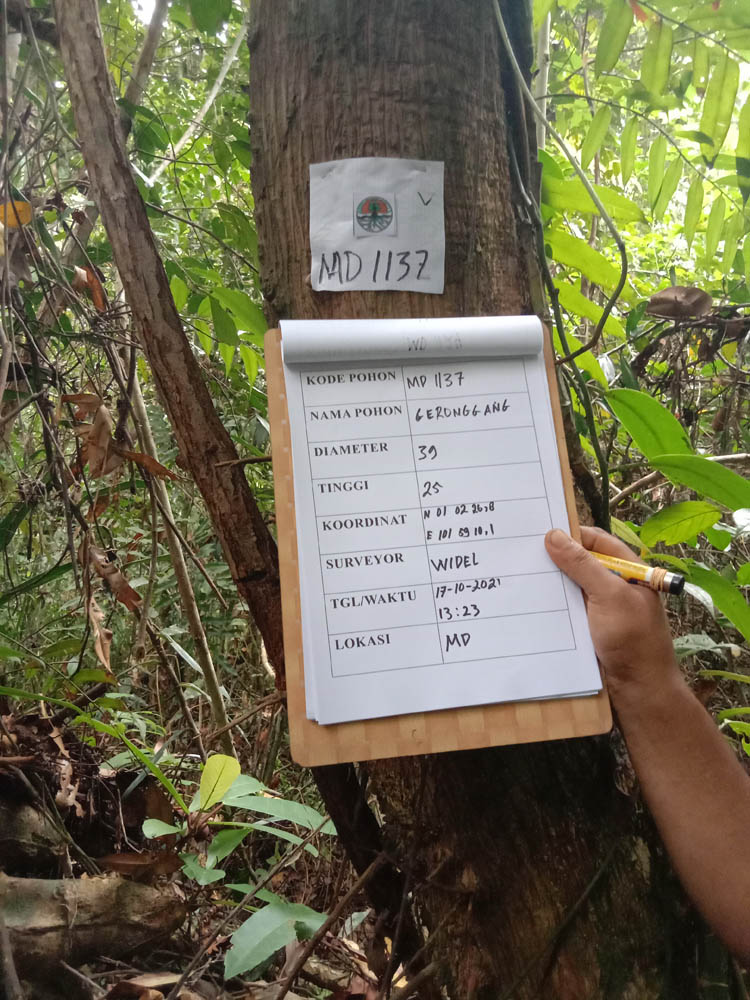 MD 1137
KODE POHON MD 1137
NAMA POHON GERONGGANG
DIAMETER 39
TINGGI 25
KOORDINAT N 01 02 26,8
E 101 59 10,1
SURVEYOR WIDEL
TGL/WAKTU 17-10-2021
13:23
LOKASI MD